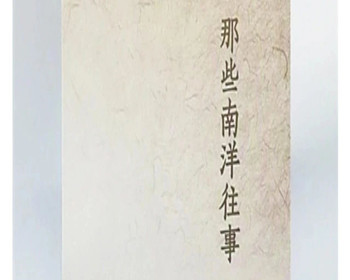 那些南洋往事